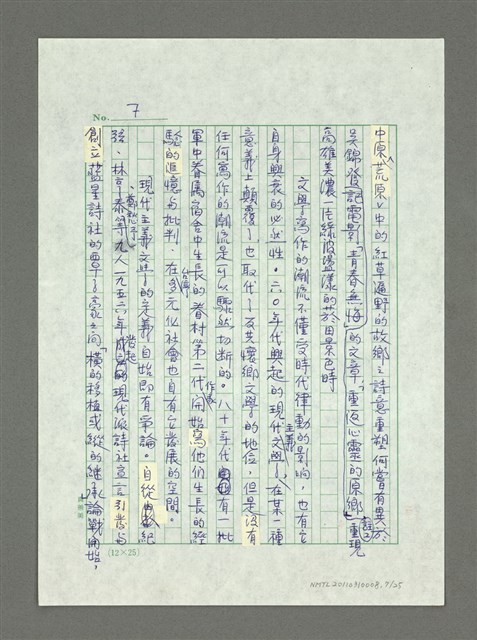 No. 7
中原︽荒原︾中的紅草遍野的故鄉之詩意重塑何嘗有異於
吳錦發記電影「青春無悔」的文章「重返心靈的原鄉」註2重現
高雄美濃一片綠波盪漾的菸田景色時
文學寫作的潮流不僅受時代律動的影響,也有它
自身興衰的必然性。六〇年代興起的現代主義文學,在某一種
意義上顛覆了也取代了反共懷鄉文學的地位,但是沒有
任何寫作的潮流是可以驟然切斷的。八十年代有一批
軍中眷屬宿舍中生長的眷村第二代作家開始寫他們生長的經
驗的追憶與批判,在台灣多元化社會也自有它發展的空間。
現代主義文學的定義自始即有爭論。自從紀
弦、鄭愁予、林亨泰等九人一九五六年發起的現代派詩社宣言引發與
創立藍星詩社的覃子豪之間「橫的移植或縱的繼承論戰開始,
(12×25)
NMTL20110310008, 7/25